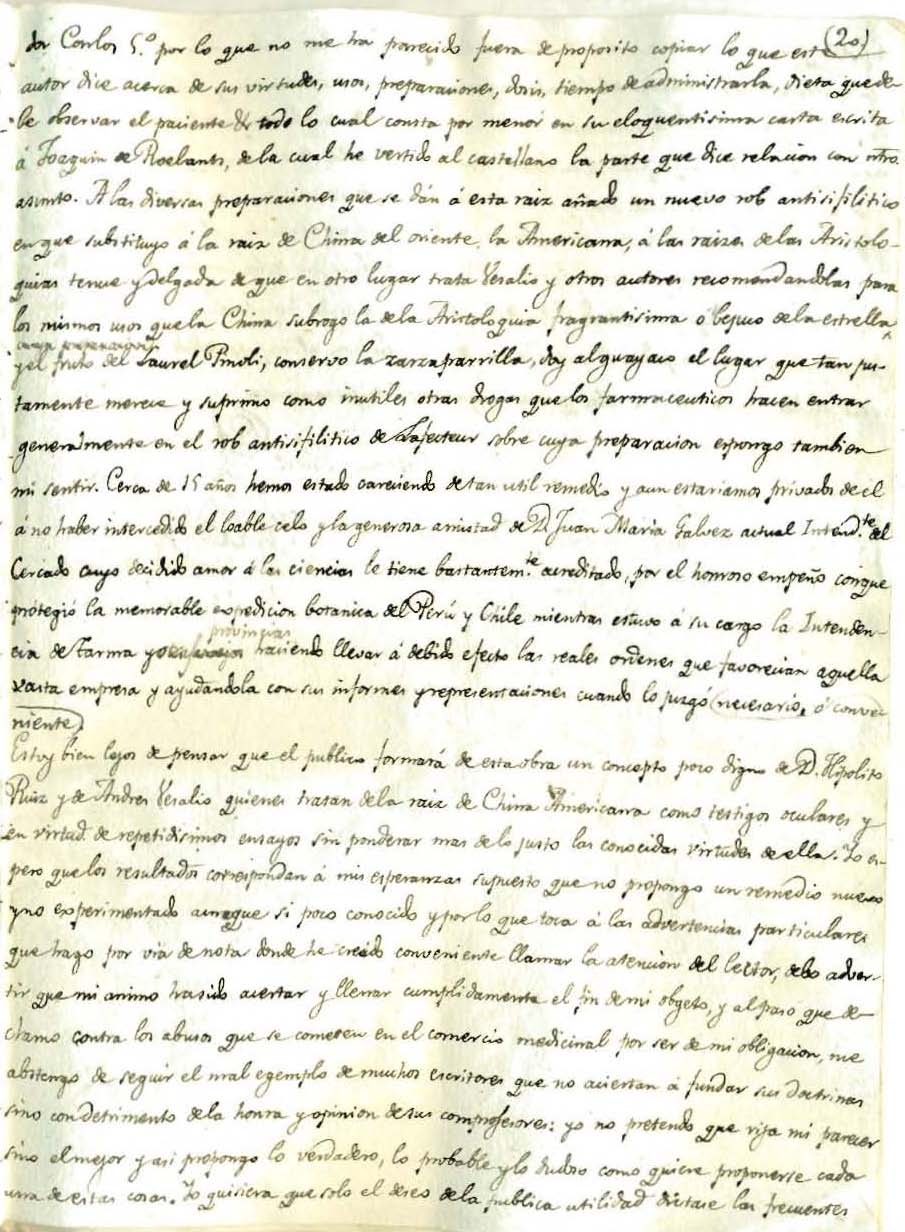 dor Carlos 5.º por lo que no me ha parecido fuera de proposito copiar lo que este (20)
autor dice acerca de sus virtudes, usos, preparaciones, dosis, tiempo de administrarla, dieta que de-
be observar el paciente & todo lo cual consta por menor en su eloquentisima carta escrita
á Joaquin de Roelants, de la cual he vertido al castellano la parte que dice relacion con ntro.
asunto. A las diversas preparaciones que se dán á esta raiz añado un nuevo rob antisifilitico
en que substituyo á la raiz de China del oriente, la Americana, á las raizes de las Aristolo-
quias tenue y delgada de que en otro lugar trata Vesalio y otros autores recomendandolas para
los mismos usos que la China subrogo la de la Aristoloquia fragrantisima o bejuco de la estrella
y el fruto del Laurel Pmoli, conservo la zarzaparrilla, doy al guayaco el lugar que tan jus-
tamente merece y suprimo como inutiles otras drogas que los farmaceuticos hacen entrar
generalmente en el rob antisifilitico de Lafecteur sobre cuya preparacion espongo tambien
mi sentir. Cerca de 15 años hemos estado careciendo de tan util remedio y aun estariamos privados de el
á no haber intercedido el loable celo y la generosa amistad de D. Juan Maria Galvez actual Intend.te del
Cercado cuyo decidido amor á las ciencias le tiene bastantem.te acreditado, por el honroso empeño con que
protegió la memorable expedicion botanica del Perú y Chile mientras estuvo á su cargo la Intenden-
provincias
cia de Tarma y haciendo llevar á debido efecto las reales ordenes que favorecian aquella
vasta empresa y ayudandola con sus informes y representaciones cuando lo juzgó necesario, ó conve-
niente.
Estoy bien lejos de pensar que el publico formará de esta obra un concepto poco digno de D. Hipolito
Ruiz y de Andres Vesalio quienes tratan de la raiz de China Americana como testigos oculares y
en virtud de repetidisimos ensayos sin ponderar mas de lo justo las conocidas virtudes de ella. Yo es-
pero que los resultados correspondan á mis esperanzas supuesto que no propongo un remedio nuevo
y no experimentado aunque si poco conocido y por lo que toca á las advertencias particulares
que hago por via de nota donde he creido conveniente llamar la atencion del lector, debo adver-
tir que mi animo ha sido acertar y llenar cumplidamente el fin de mi objeto, y al paso que de-
clamo contra los abusos que se cometen en el comercio medicinal por ser de mi obligacion, me
abstengo de seguir el mal egemplo de muchos escritores que no aciertan á fundar sus doctrinas
sino con detrimento de la honra y opinion de sus comprofesores: yo no pretendo que rija mi parecer
sino el mejor y asi propongo lo verdadero, lo probable y lo dudoso como quiere proponerse cada
una de estas cosas. Yo quisiera que solo el deseo de la publica utilidad dictase las frecuentes